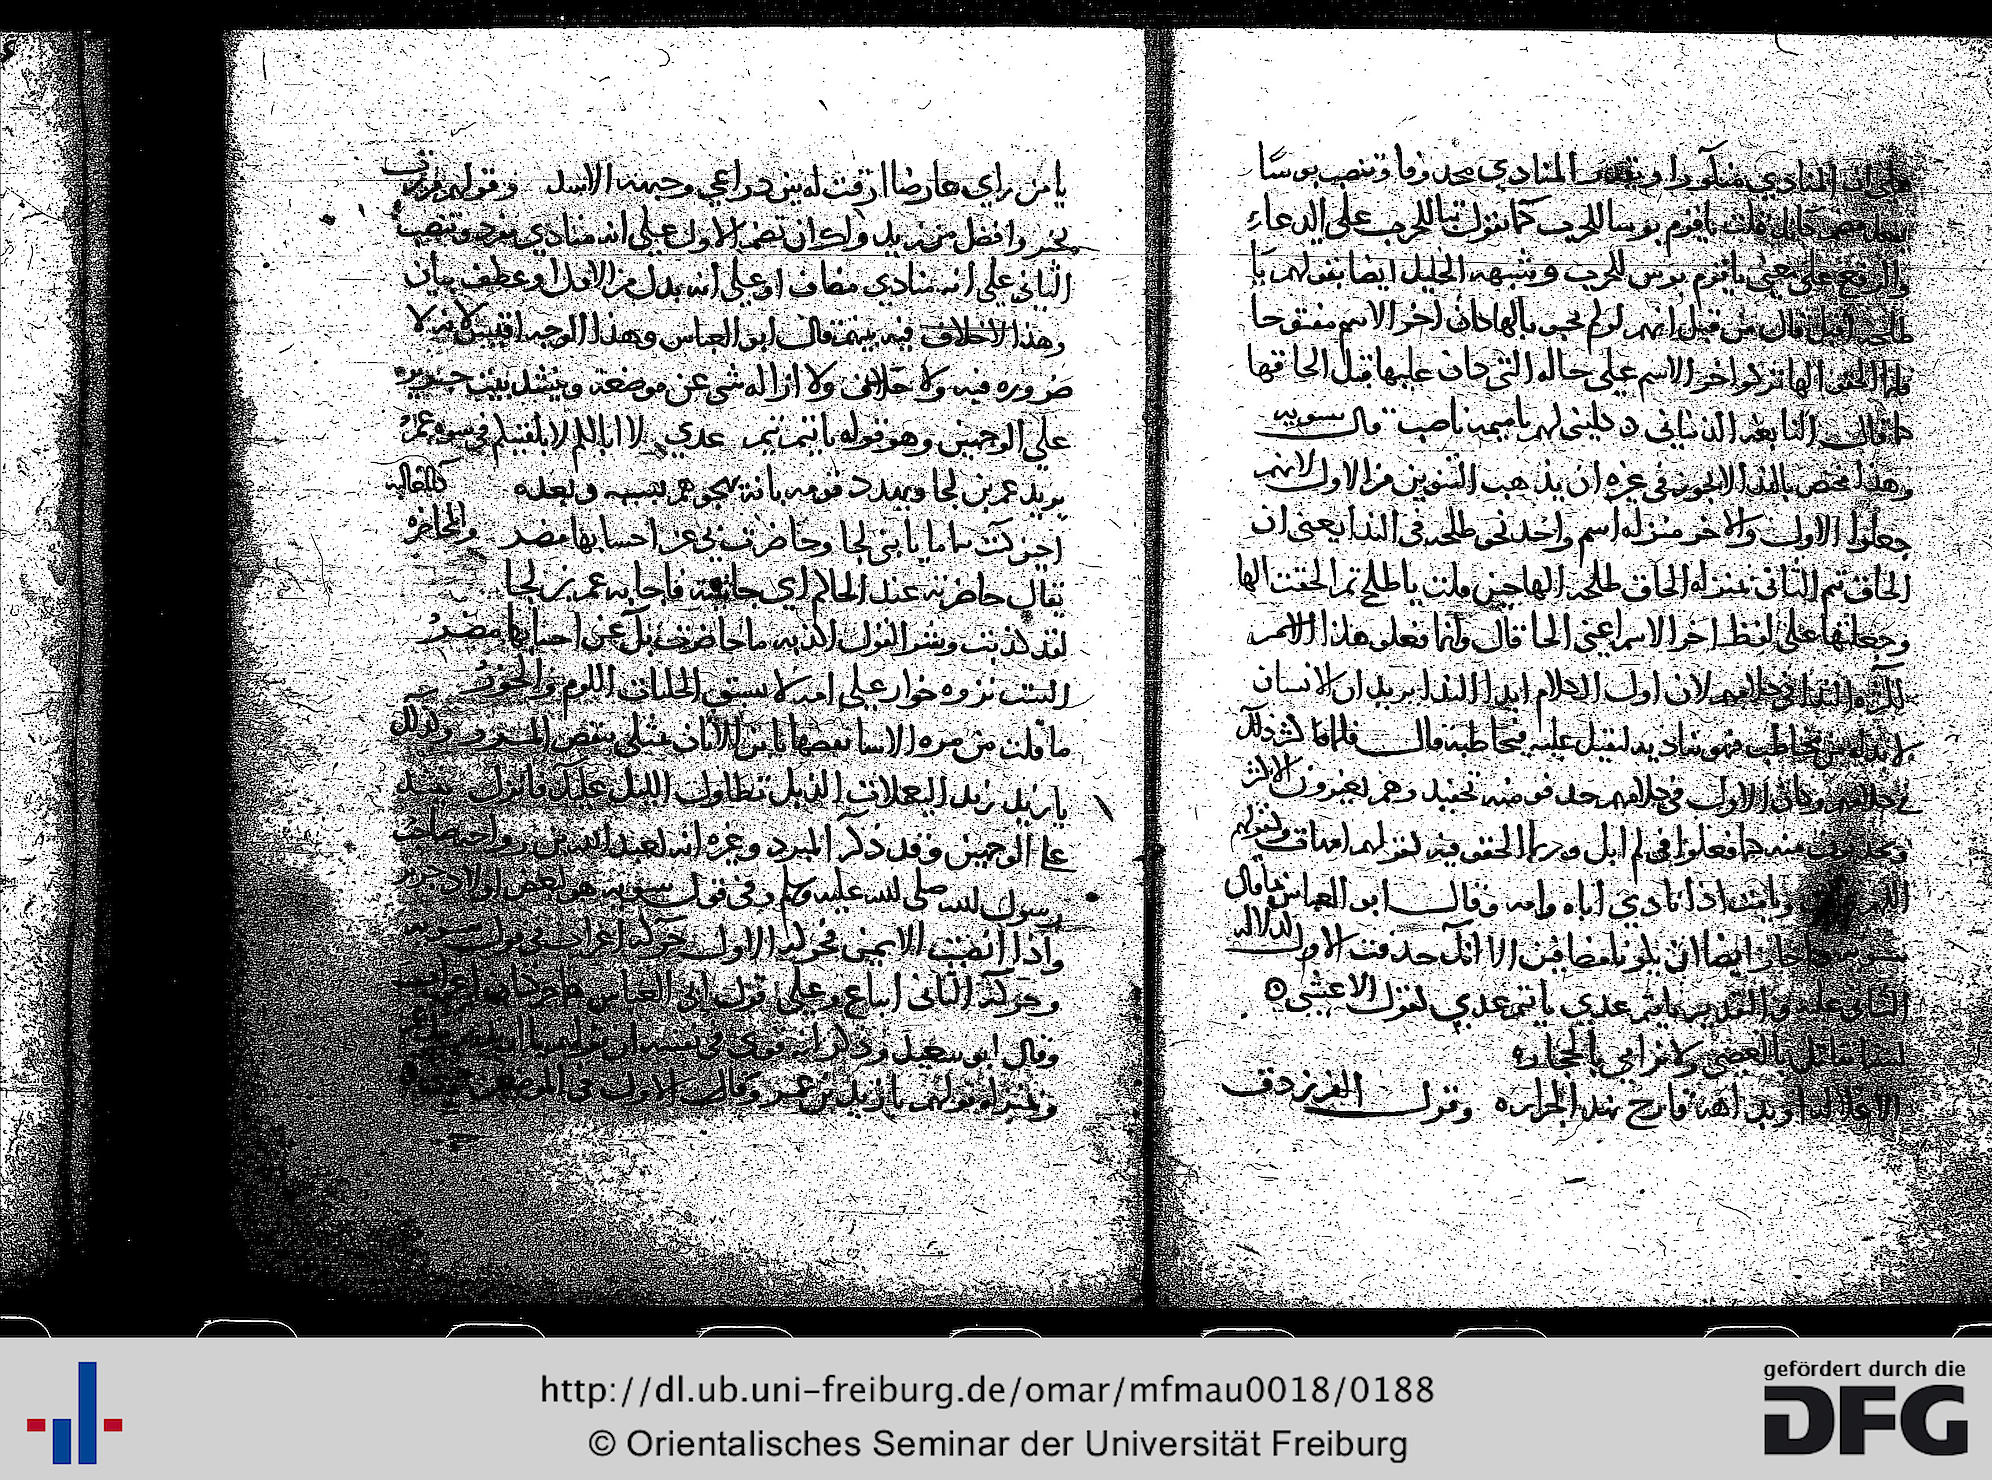 ان المنادي مذكورا ويقدر المنادي محذوفا وتنصب بوسا
قلت يا قوم بوسا للحرب كما تقول تبا للحرب على الدعاء
والرفع على معنى يا قوم بوس للحرب وشبهه الخليل ايضا بقولهم يا
طلحة اقبل قال من قبل انهم لو لم يجيو بالها كان اخر الاسم مفتوحا
فلما الحقوا الها تركوا اخر الاسم على حاله التي كان عليها قبل الحاقها
كما قال النابغة الذبياني كليني لهم يا اميمة ناصب قال سيبويه
وهذا مختص بالندا لا يجوز في غيره ان يذهب التنوين من الاول لانهم
جعلوا الاول والاخر منزلة اسم واحد نحو طلحة في الندا يعني ان
الحاق تيم الثاني بمنزلة الحاق طلحة الها حين قلت يا طلح ثم الحقت الها
وجعلتها على لفظ اخر الاسم اعني الحا قال وانما فعلو هذا الامر
لكثرة الندا في كلامهم لان اول الكلام ابدا الندا يريد ان الانسان
لا بد له من مخاطب فهو يناديه ليقبل عليه فيخاطبه قال فلما كثر ذلك
في كلامهم وكان الاول في كلامهم حذفو منه تخفيفا وهم يغيرون الاكثر
ويحذفون منه كما فعلوا في لم ابل وربما الحقو فيه لقولهم امهات ولقولهم
اللهم ويا ابت اذا نادي اباه وامه وقال ابو العباس ما قال
ايضا ان يكونا مضافين الا انك حذفت الاول لدلالة
الثاني عليه والتقدير يا تيم عدي يا تيم عدي كقول الاعشى
لسنا نقاتل بالعصي ولا نرامي بالحجاره
الا علالة او بداهة قارح نهد الجزاره وقول الفرزدق
يا من راي عارضا ارقت له بين ذراعي وجبهة الاسد وقولهم مررت
بخير وافضل من زيد ولك ان تضم الاول علي انه منادي مفرد وتنصب
الثاني على انه منادي مضاف او على انه بدل من الاول او عطف بيان
وهذا لا خلاف فيه بينهم قال ابو العباس وهذا الوجه اقيس لانه لا
ضروره فيه ولا خلاف ولا ازالة شي عن موضعه وينشد بيت جرير
علي الوجهين وهو قوله يا تيم تيم عدي لا ابا لكم لا يلقينكم في سوة عمر
يريد عمر بن لجا ويهدد قومه بانه يهجوهم بسببه وبعده
احين كنت سماما يا بني لجا وخاضرت بي عن احسابها مضر والمخاطره
يقال خاطرته عند الحاكم اي فاجابه عمر بن لجا
لقد كذبت وشر القول اكذبه ما خاطرت بك عن احسابها مضر
الست نزوة خوار على امة لا يسبق الحلبات اللوم والخور
ما قلت من مرة الا سانقضها يا بن الاتان بمثلي تنقض المرر وكذلك
يا زيد زيد اليعملات الذبل تطاول الليل عليك فانزل ينشد
على الوجهين وقد ذكر المبرد وغيره انه لعبد الله بن رواحة صاحب
رسول الله صلى الله عليه وسلم وفي قول سيبويه هو لبعض اولاد جرير
واذا اضفت الاسمين فحركة الاول حركة اعراب في قول سيبويه
وحركة الثاني اتباع وعلى قول ابي العباس
وقال ابو سعيد وذكر انه قوي في نفسه ان قولهم يا
وبمنزلة قولهم يا زيد بن عمرو وقال الاول في الموضعين
http://dl.ub.uni-freiburg.de/omar/mfmau0018/0188
© Orientalisches Seminar der Universität Freiburg
gefördert durch die
DFG